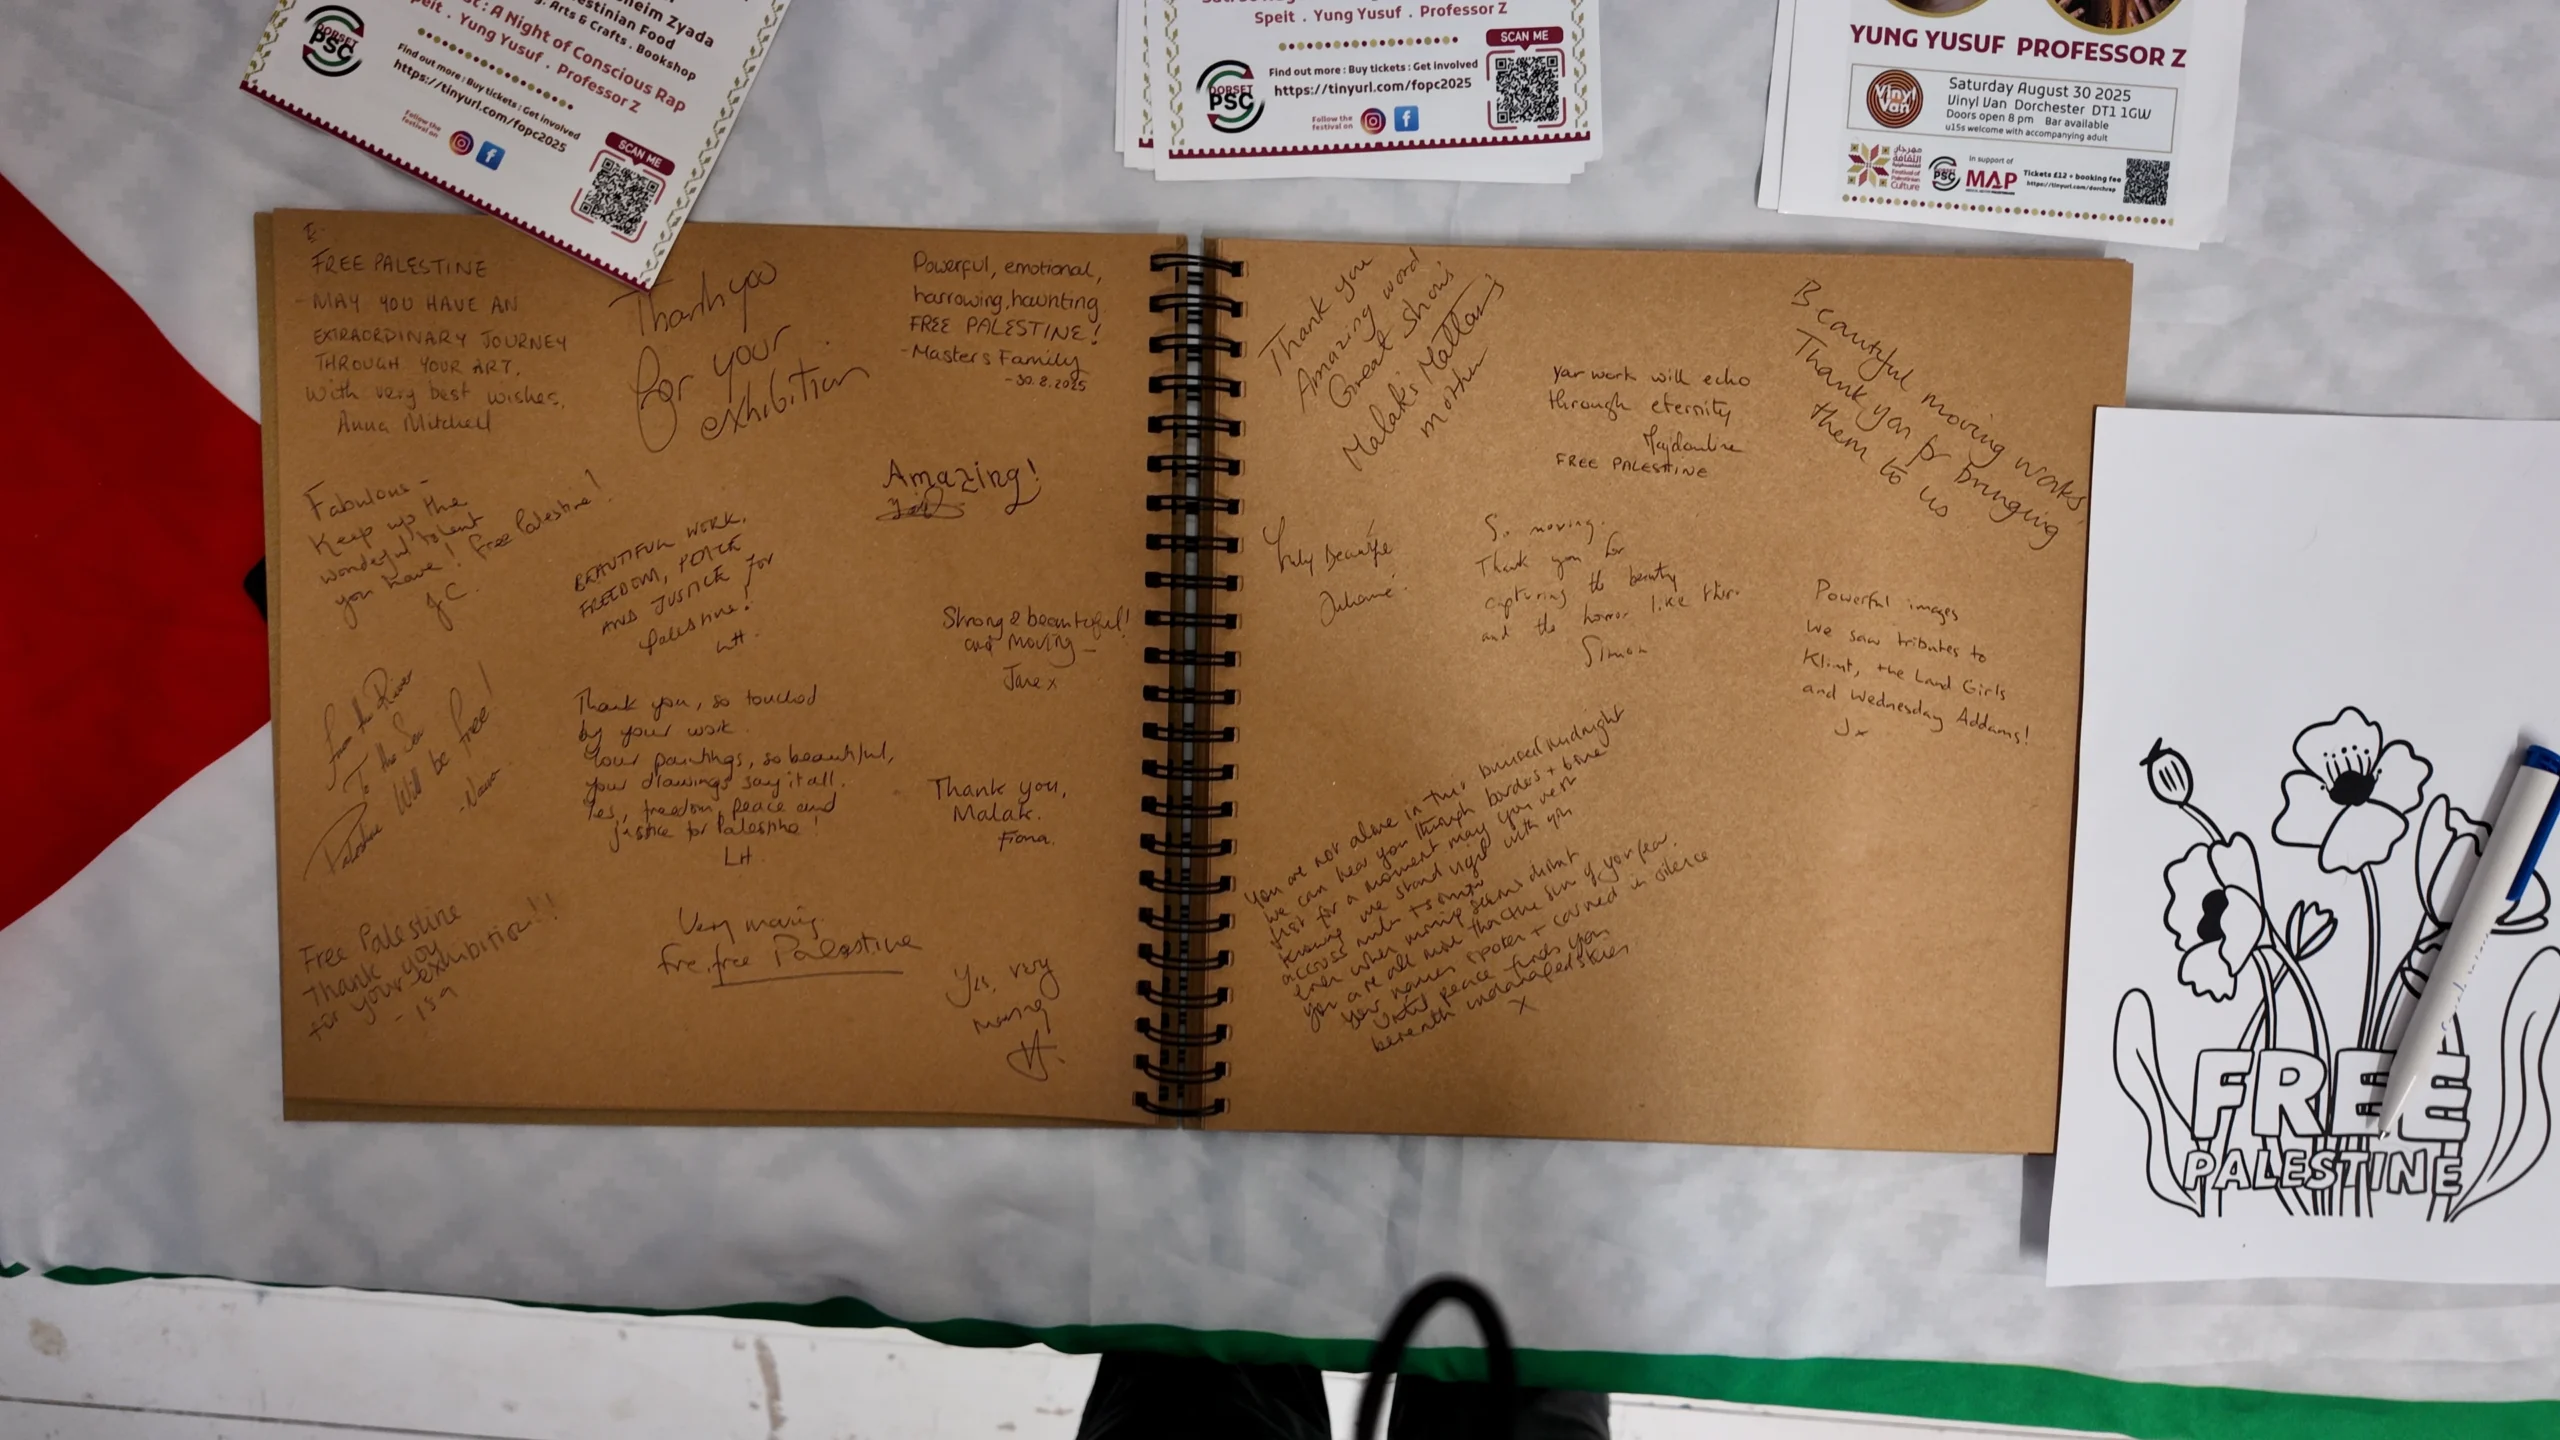 heim Zyada
estinian Food
g. Arts & Crafts . Bookshop
st : A Night of Conscious Rap
Speit . Yung Yusuf . Professor Z
Find out more : Buy tickets : Get involved
https://tinyurl.com/fopc2025
Follow the
festival on
SCAN ME
DORSET
PSC
Speit . Yung Yusuf . Professor Z
Find out more : Buy tickets : Get involved
https://tinyurl.com/fopc2025
Follow the
festival on
SCAN ME
DORSET
PSC
YUNG YUSUF PROFESSOR Z
Vinyl
Van
Saturday August 30 2025
Vinyl Van Dorchester DT1 1GW
Doors open 8 pm Bar available
u15s welcome with accompanying adult
مهرجان
الثقافة
الفلسطينية
Festival of
Palestinian
Culture
PSC
in support of
MAP
Tickets £12 + booking fee
https://tinyurl.com/dorchrap
FREE PALESTINE
- MAY YOU HAVE AN
EXTRAORDINARY JOURNEY
THROUGH YOUR ART.
With very best wishes,
Anna Mitchell
Thank you
for your
exhibition
Powerful, emotional,
harrowing, haunting
FREE PALESTINE!
- Masters Family
- 30.8.2025
Fabulous -
Keep up the
wonderful talent
you have! Free Palestine!
JC.
Amazing!
BEAUTIFUL WORK.
FREEDOM, PEACE
AND JUSTICE for
Palestine!
LH.
Strong & beautiful!
and moving -
Jane x
From the River
To the Sea
Palestine Will be free!
Thank you, so touched
by your work.
Your paintings, so beautiful,
your drawings say it all.
Yes, freedom, peace and
justice for Palestine!
LH.
Thank you,
Malak.
Fiona.
Free Palestine
Thank you
for your exhibition!!
- Isa
Very moving.
free, free Palestine
Yes, very
moving
Thank you
Amazing word
Great show
Malak's Mattars
mother
Your work will echo
through eternity
Majdouline
FREE PALESTINE
Beautiful moving works,
Thank you for bringing
them to us
Truly Beautiful
So moving.
Thank you for
capturing the beauty
and the horror like this.
Simon
Powerful images
We saw tributes to
Klimt, the Land Girls
and Wednesday Addams!
Jx
You are not alone in this bruised midnight
we can hear you through borders + bone
Just for a moment may you rest
knowing we stand vigil with you
across miles
Even when morning seems distant
You are all more than the sum of your fear.
Your names spoken + carried in silence
Until peace finds you
beneath undamaged skies
X
FREE
PALESTINE